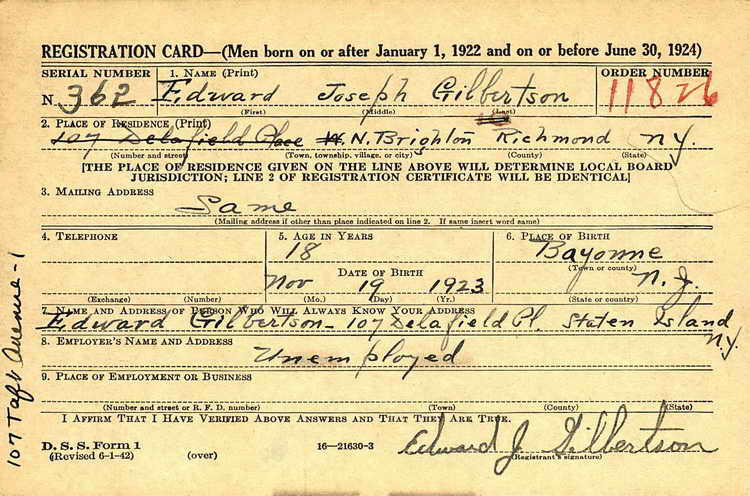 REGISTRATION CARD—(Men born on or after January 1, 1922 and on or before June 30, 1924)
SERIAL NUMBER 1. NAME (Print) ORDER NUMBER
N 362 Edward Joseph Gilbertson 11826
(First) (Middle) (Last)
2. PLACE OF RESIDENCE (Print)
107 Delafield Place W. N. Brighton Richmond N.Y.
(Number and street) (Town, township, village, or city) (County) (State)
[THE PLACE OF RESIDENCE GIVEN ON THE LINE ABOVE WILL DETERMINE LOCAL BOARD
JURISDICTION; LINE 2 OF REGISTRATION CERTIFICATE WILL BE IDENTICAL]
3. MAILING ADDRESS
Same
(Mailing address if other than place indicated on line 2. If same insert word same)
4. TELEPHONE 5. AGE IN YEARS 6. PLACE OF BIRTH
18 Bayonne
(Town or county)
DATE OF BIRTH
Nov 19 1923 N.J.
(Exchange) (Number) (Mo.) (Day) (Yr.) (State or country)
7. NAME AND ADDRESS OF PERSON WHO WILL ALWAYS KNOW YOUR ADDRESS
Edward Gilbertson - 107 Delafield Pl. Staten Island
N.Y.
8. EMPLOYER'S NAME AND ADDRESS
Unemployed
9. PLACE OF EMPLOYMENT OR BUSINESS
(Number and street or R. F. D. number) (Town) (County) (State)
I AFFIRM THAT I HAVE VERIFIED ABOVE ANSWERS AND THAT THEY ARE TRUE.
D. S. S. Form 1
(Revised 6-1-42) (over) 16—21630-3 Edward J Gilbertson
(Registrant's signature)
107 Taft Avenue - 1